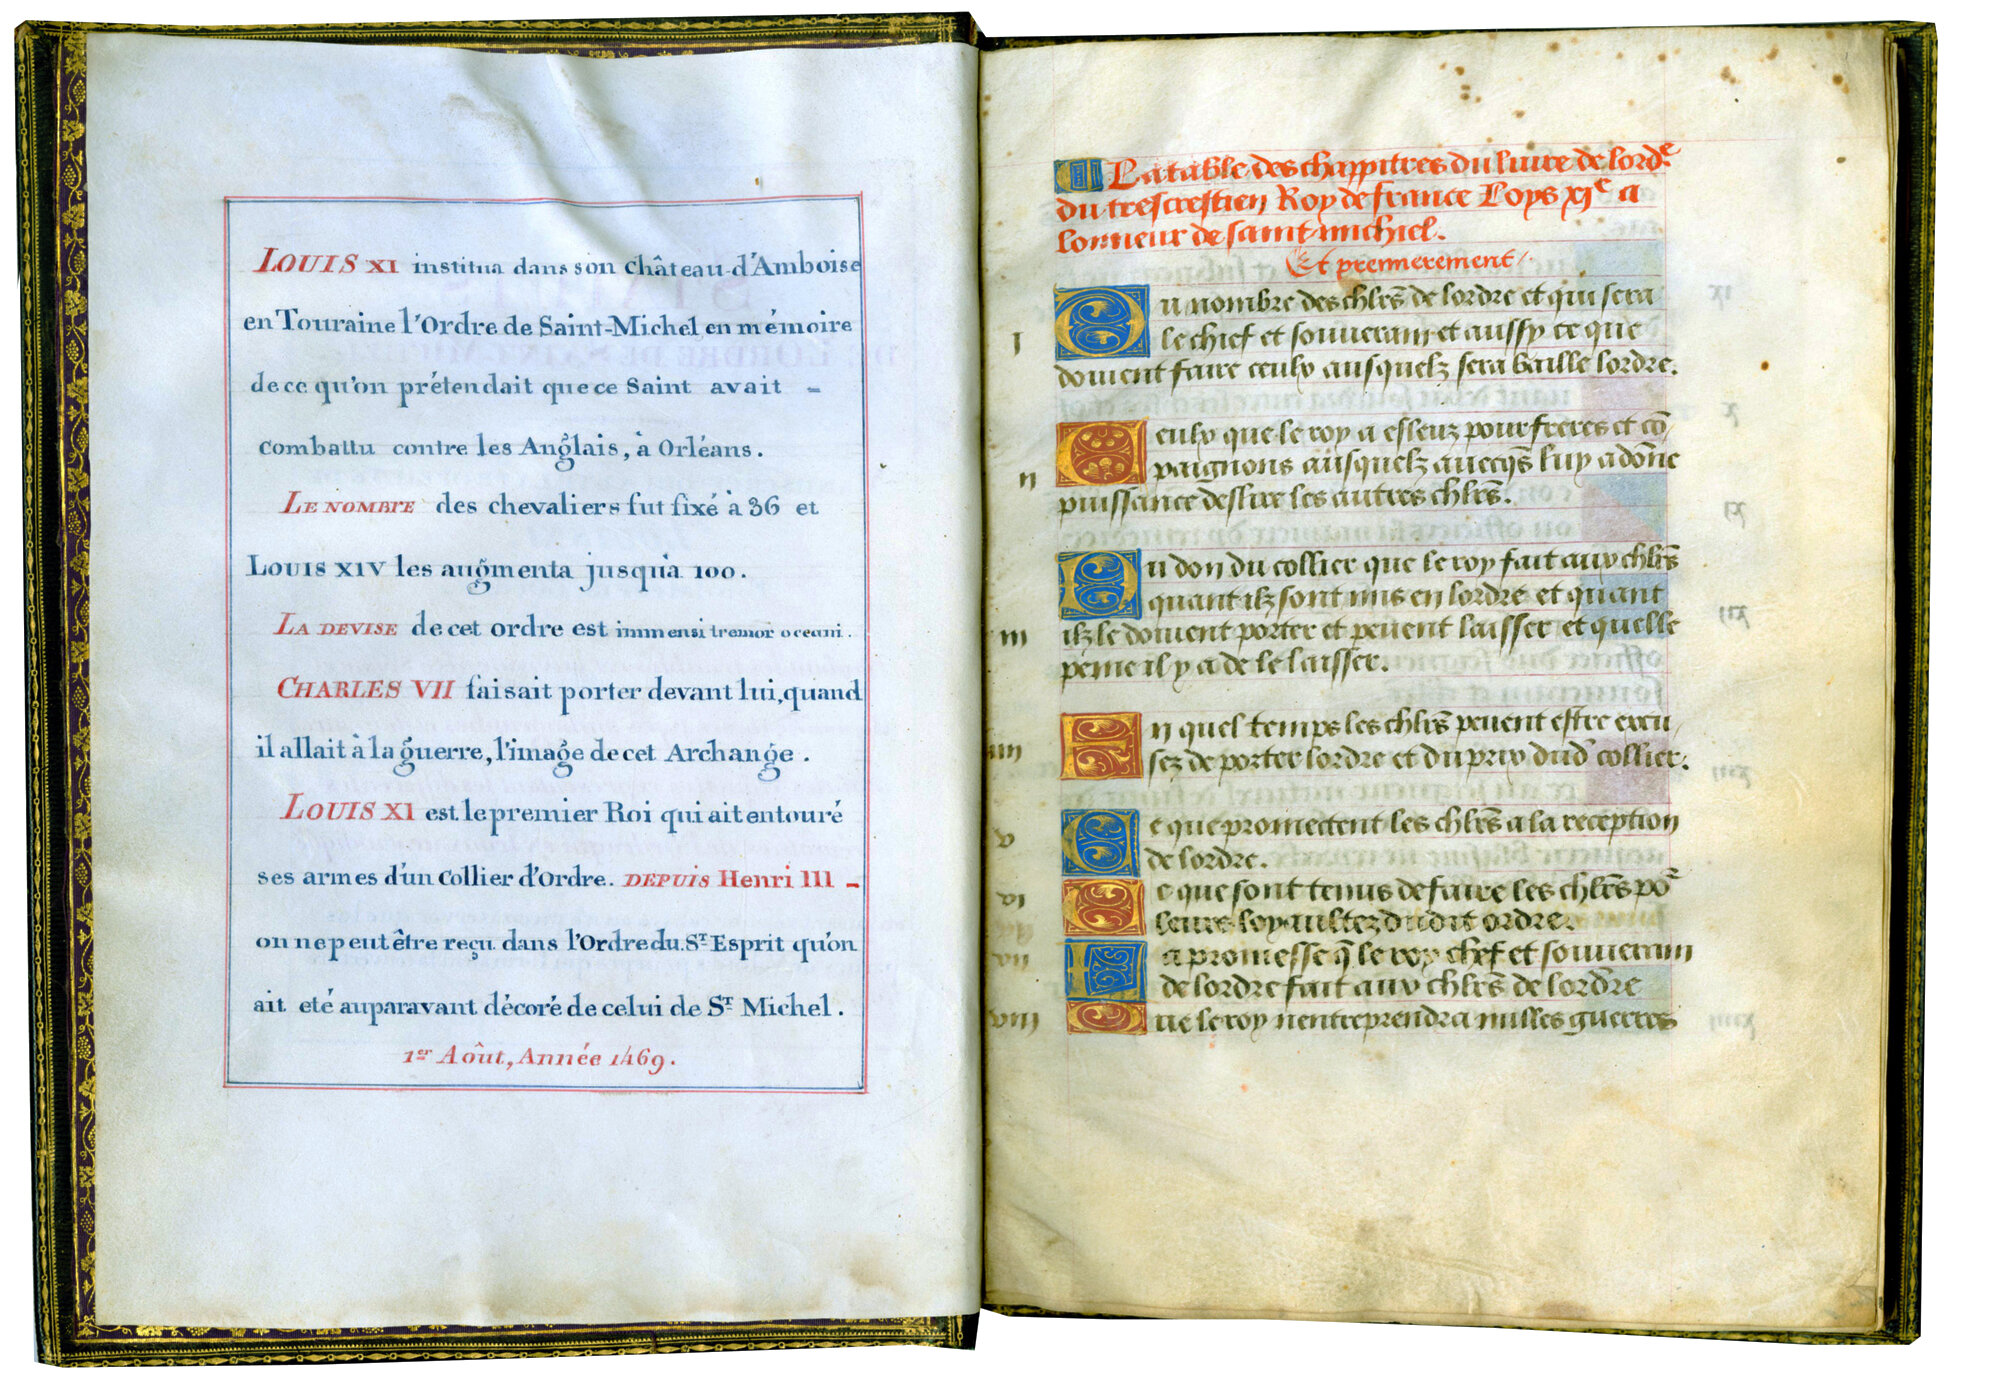 LOUIS XI institua dans son château d'Amboise
en Touraine l'Ordre de Saint-Michel en mémoire
de ce qu'on prétendait que ce Saint avait -
combattu contre les Anglais, à Orléans.
LE NOMBRE des chevaliers fut fixé à 36 et
LOUIS XIV les augmenta jusqu'à 100.
LA DEVISE de cet ordre est immensi tremor oceani.
CHARLES VII faisait porter devant lui, quand
il allait à la guerre, l'image de cet Archange.
LOUIS XI est le premier Roi qui ait entouré
ses armes d'un Collier d'Ordre. DEPUIS Henri III -
on ne peut être reçu dans l'Ordre du St. Esprit qu'on
ait eté auparavant décoré de celui de St. Michel.
1er Août, Année 1469.
La table des chappitres du liure de lordre
du trescrestien Roy de france Loys xje a
lonneur de saint michiel.
Et premierement
j
Du nombre des chlrs de lordre et qui sera
le chief et souuerain et aussy ce que
doiuent faire ceulx ausquelz sera baille lordre.
ij
Ceulx que le roy a esleuz pour freres et cō
paignons ausquelz auecqs luy a dōne
puissance deslire les autres chlrs.
iij
Du don du collier que le roy fait aux chlrs
quant ilz sont mis en lordre et quant
ilz le doiuent porter et peuent laisser et quelle
peine il y a de le laisser.
iiij
En quel temps les chlrs peuent estre excu
sez de porter lordre et du prix dud collier.
v
Ce que promectent les chlrs a la reception
de lordre.
vi
Ce que sont tenus de faire les chlrs po
leurs loyaultez dudit ordre.
vij
La promesse q̄ le roy chef et souuerain
de lordre fait aux chlrs de lordre
viij
Que le roy nentreprendra nulles guerres